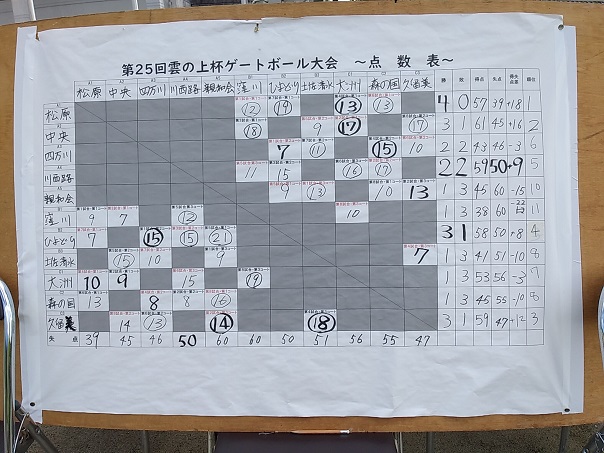 第25回雲の上杯ゲートボール大会 ～点 数 表～
松原 中央 四万川 川西路 親和会 窪川 ひよどり 土佐清水 大洲 森の国 久留美 勝 敗 得点 失点 得失点差 順位
松原 ⑫ ⑲ ⑬ ⑬ 4 0 57 39 +18 1
中央 ⑱ 9 ⑰ ⑰ 3 1 61 45 +16 2
四万川 7 ⑪ ⑮ 10 2 2 43 46 -3 6
川西路 11 15 ⑯ ⑰ 2 2 59 50 +9 5
親和会 9 ⑬ 10 13 1 3 45 60 -15 10
窪川 9 7 ⑫ 10 1 3 38 60 -22 11
ひよどり 7 ⑮ ⑮ ㉑ 3 1 58 50 +8 4
土佐清水 ⑮ 10 9 7 1 3 41 51 -10 8
大洲 10 9 15 ⑲ 1 3 53 56 -3 7
森の国 13 8 8 ⑯ 1 3 45 55 -10 8
久留美 14 ⑬ ⑭ ⑱ 3 1 59 47 +12 3
失点 39 45 46 50 60 60 50 51 56 55 47